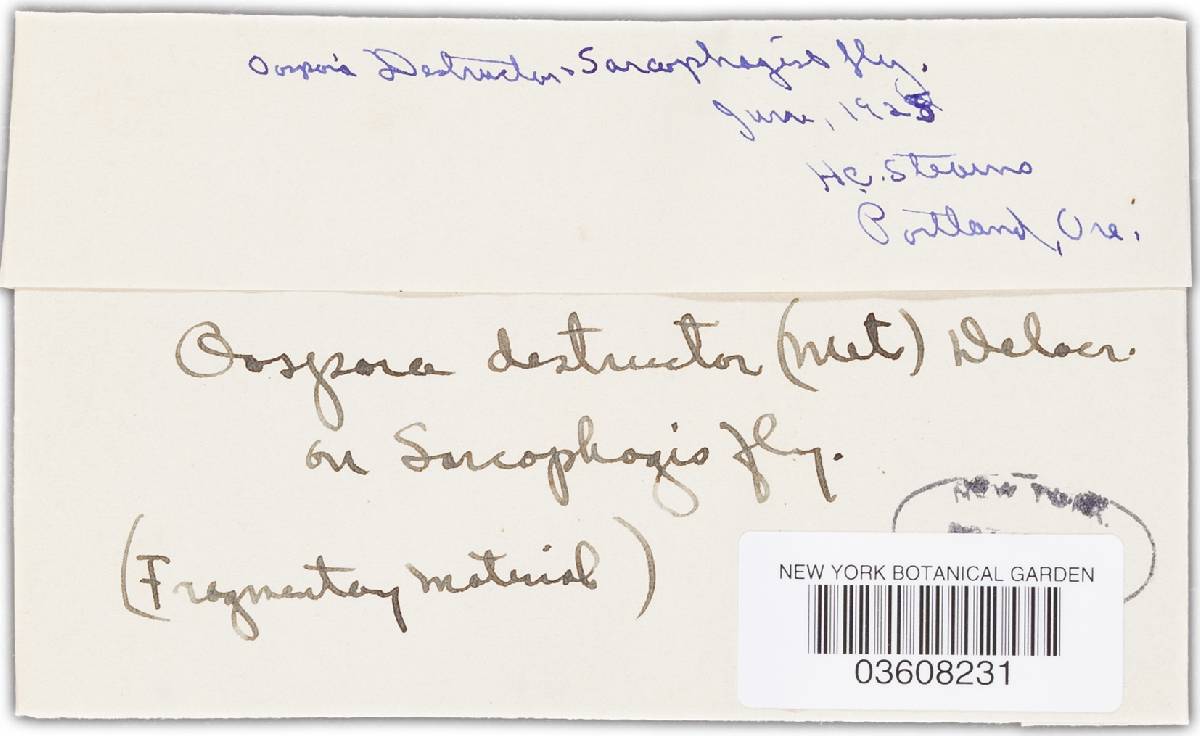 Oospora Destructor - Sarcophagist fly.
June, 1925
H.C. Stevens
Portland, Ore.
Oospora destructor (Met) Delacr.
on Sarcophagis fly.
(Fragmentary material)
NEW YORK
NEW YORK BOTANICAL GARDEN
03608231